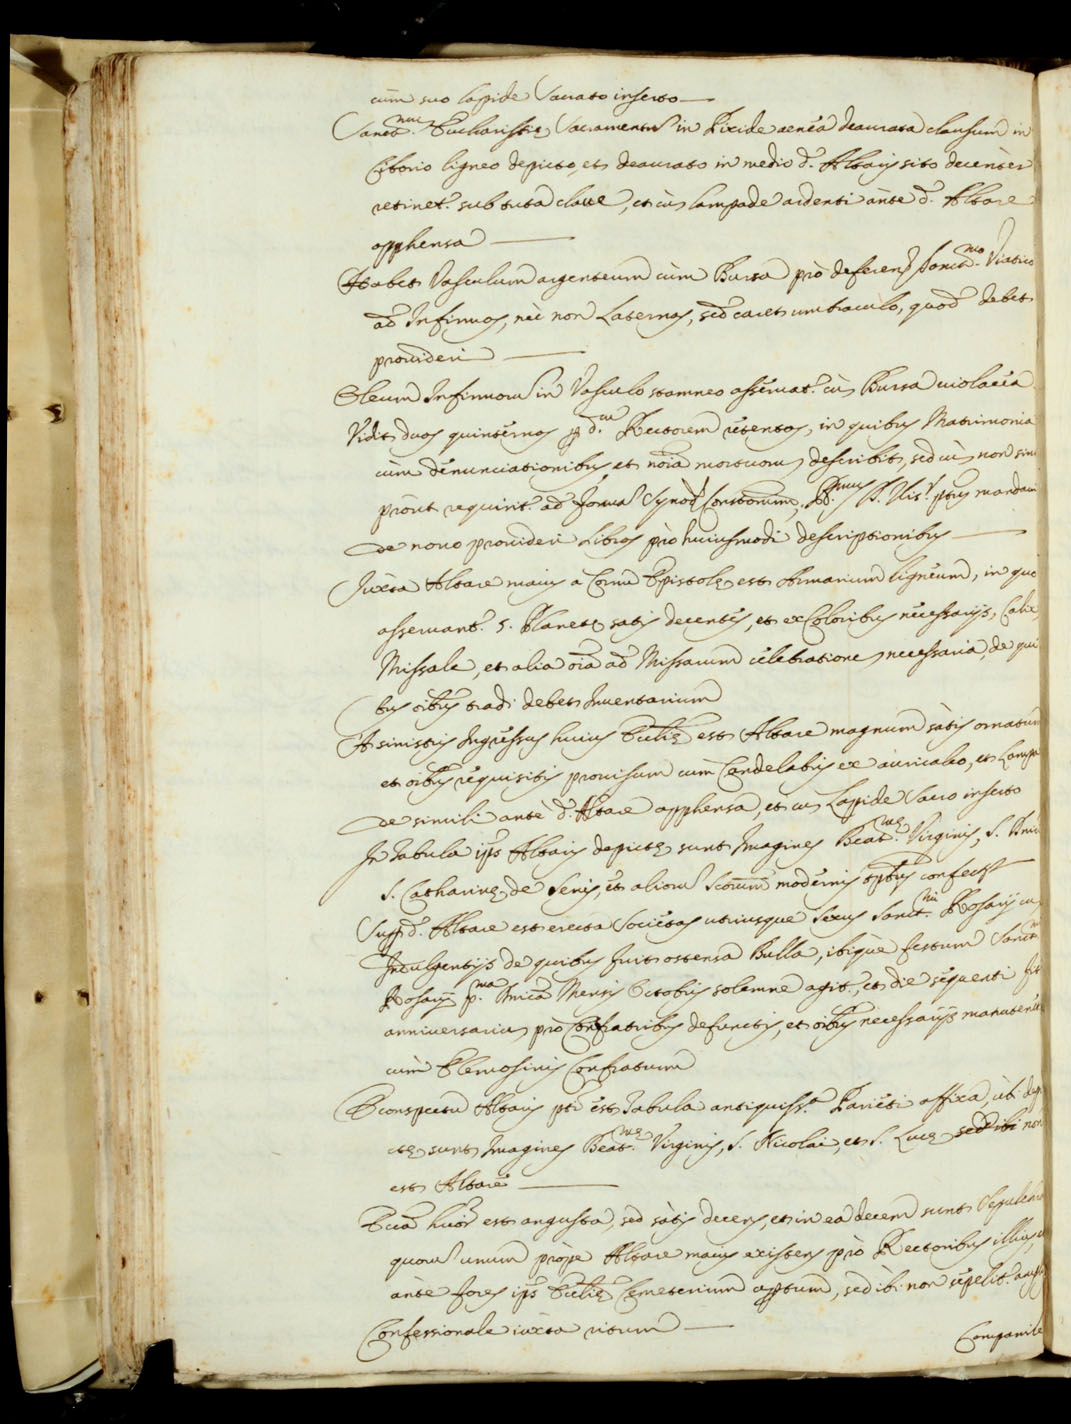 cum suo lapide sacrato inserto
Sanct.mu Eucharistię Sacramentu in Pixide aenea deaurata clausum in
Ciborio ligneo depicto, et deaurato in medio d. Altaris sito decenter
retinet. sub tuta clave, et cu lampade ardenti ante d. Altare
apphensa
Habet Vasculum argenteum cum Bursa pro deferen. Sanct.mo Viatico
ad Infirmos, nec non Laternas, sed caret umbraculo, quod debet
provideri
Oleum Infirmoru in Vasculo stamneo asservat. cu Bursa violacea
Vidit duos quinternos p d.um Rectorem retentos, in quibus Matrimonia
cum denunciationibus et noia mortuoru describit, sed cu non sint
prout requirit. ad forma Synod. Constonum, Ill.mus D. Vis.r ptus mandavit
de novo provideri Libros pro huiusmodi descriptionibus
Iuxta Altare maius a Cornu Epistolę est Armarium ligneum, in quo
asservant. 5. Planetę satis decentes, et ex Coloribus necessarijs, Calix,
Missale, et alia oia ad Missarum celebratione necessaria, de qui
bus oibus tradi debet Inventarium
A sinistris Ingressus huius Ecclię est Altare magnum satis ornatum
et oibus requisitis provisum cum Candelabris ex auricalco, et Lampa
de simili ante d. Altare apphensa, et cu Lapide Sacro inserto
In tabula ips. Altaris depictę sunt Imagines Beat.mę Virginis, S.
S. Catharinę de Senis, et alioru Sctorum modernis confect.
Supp d. Altare est erecta Societas utriusque Sexus Sanct.mi Rosarij cu
Indulgentijs de quibus fuit ostensa Bulla, ibique festum Sanct.mi
Rosarij p.ma Dnica Mensis Octobris solemne agit., et die sequenti fit
anniversariu pro Confratribus defunctis, et oibus necessarijs manutenet.
cum Elemosinis Confratrum
E conspectu Altaris pti est Tabula antiquiss.a Parieti affixa, ubi depi
ctę sunt Imagines Beat.mę Virginis, S. Nicolai, et S. Lucę sed ibi non
est Altare
Eccla huor est angusta, sed satis decens, et in ea decem sunt Sepulchra
quoru unum prope Altare maius existens pro Rectoribus illius, et
ante fores ips. Ecclię Cemeterium apptum, sed ibi non sepelit.
Confessionale iuxta ritum
Campanile